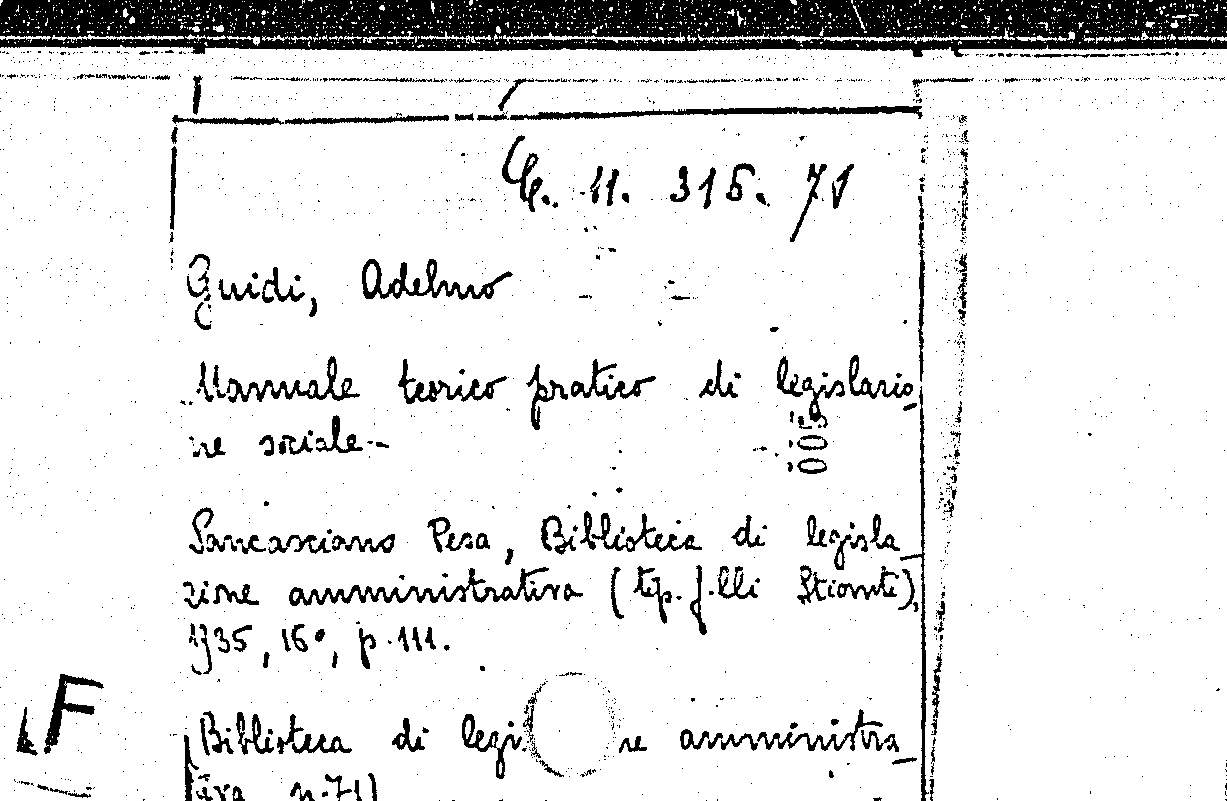 11. 315. 71
Guidi, Adelmo
Manuale teorico pratico di legislazio
ne sociale-
005
Sancasciano Pesa, Biblioteca di legisla_
zione amministrativa (tip. f.lli Stianti),
1935, 16°, p. 111.
F
(Biblioteca di legi ne amministra_
tiva n. 71)